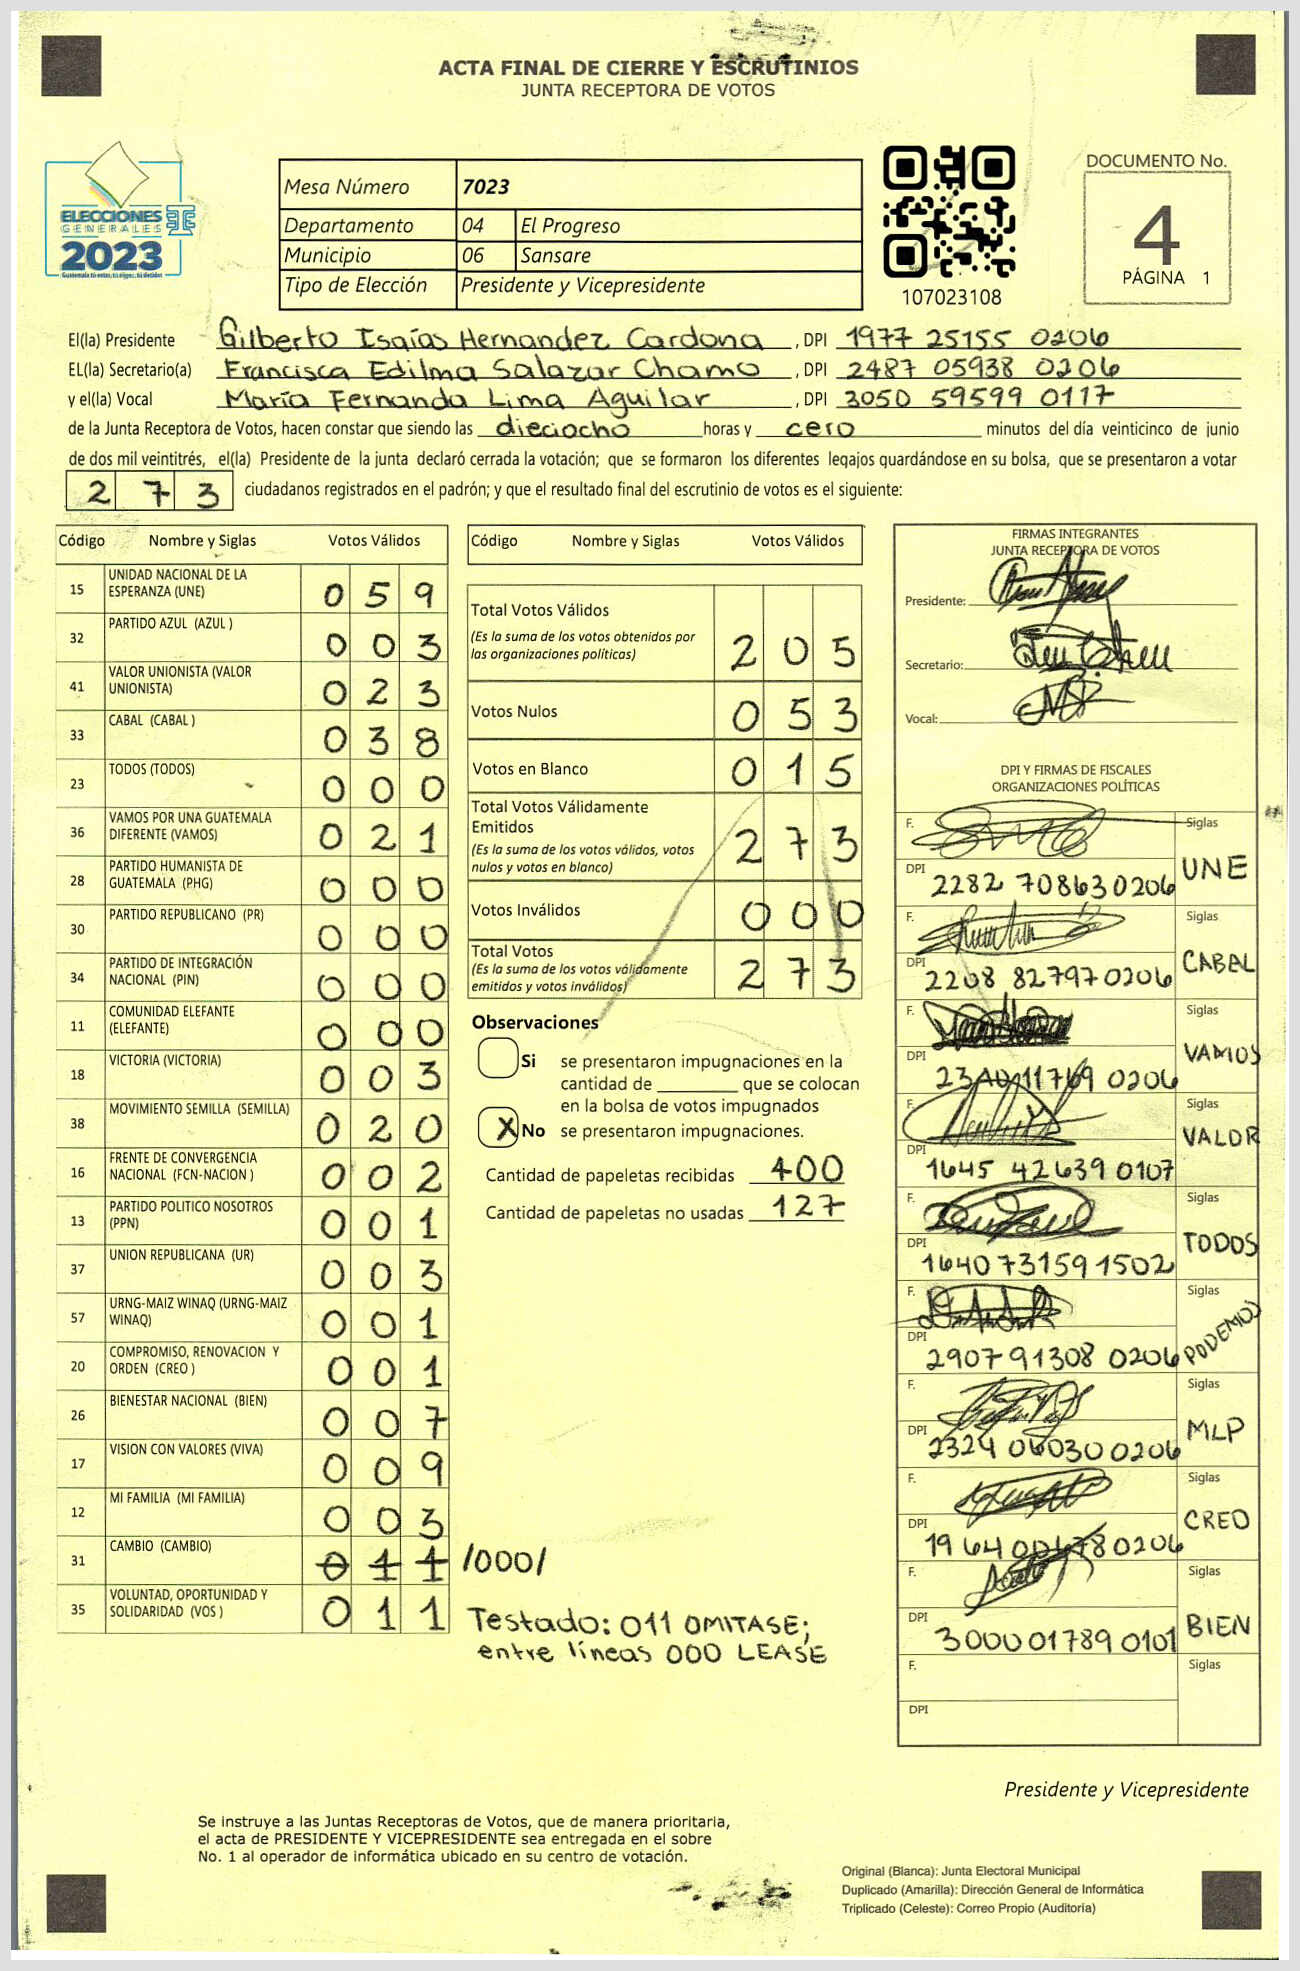 ACTA FINAL DE CIERRE Y ESCRUTINIOS
JUNTA RECEPTORA DE VOTOS
ELECCIONES
GENERALES
2023
Guatemala tú eres, tú eliges, tú decides
Mesa Número 7023
Departamento 04 El Progreso
Municipio 06 Sansare
Tipo de Elección Presidente y Vicepresidente
107023108
DOCUMENTO No.
4
PÁGINA 1
El(la) Presidente Gilberto Isaías Hernandez Cardona, DPI 1977 25155 0206
EL(la) Secretario(a) Francisca Edilma Salazar Chamo, DPI 2487 05938 0206
y el(la) Vocal María Fernanda Lima Aguilar, DPI 3050 59599 0117
de la Junta Receptora de Votos, hacen constar que siendo las dieciocho horas y cero minutos del día veinticinco de junio
de dos mil veintitrés, el(la) Presidente de la junta declaró cerrada la votación; que se formaron los diferentes legajos guardándose en su bolsa, que se presentaron a votar
2 7 3 ciudadanos registrados en el padrón; y que el resultado final del escrutinio de votos es el siguiente:
Código Nombre y Siglas Votos Válidos
15 UNIDAD NACIONAL DE LA ESPERANZA (UNE) 0 5 9
32 PARTIDO AZUL (AZUL ) 0 0 3
41 VALOR UNIONISTA (VALOR UNIONISTA) 0 2 3
33 CABAL (CABAL ) 0 3 8
23 TODOS (TODOS) 0 0 0
36 VAMOS POR UNA GUATEMALA DIFERENTE (VAMOS) 0 2 1
28 PARTIDO HUMANISTA DE GUATEMALA (PHG) 0 0 0
30 PARTIDO REPUBLICANO (PR) 0 0 0
34 PARTIDO DE INTEGRACIÓN NACIONAL (PIN) 0 0 0
11 COMUNIDAD ELEFANTE (ELEFANTE) 0 0 0
18 VICTORIA (VICTORIA) 0 0 3
38 MOVIMIENTO SEMILLA (SEMILLA) 0 2 0
16 FRENTE DE CONVERGENCIA NACIONAL (FCN-NACION ) 0 0 2
13 PARTIDO POLITICO NOSOTROS (PPN) 0 0 1
37 UNION REPUBLICANA (UR) 0 0 3
57 URNG-MAIZ WINAQ (URNG-MAIZ WINAQ) 0 0 1
20 COMPROMISO, RENOVACION Y ORDEN (CREO ) 0 0 1
26 BIENESTAR NACIONAL (BIEN) 0 0 7
17 VISION CON VALORES (VIVA) 0 0 9
12 MI FAMILIA (MI FAMILIA) 0 0 3
31 CAMBIO (CAMBIO) 0 1 1 /000/
35 VOLUNTAD, OPORTUNIDAD Y SOLIDARIDAD (VOS ) 0 1 1
Código Nombre y Siglas Votos Válidos
Total Votos Válidos 2 0 5
(Es la suma de los votos obtenidos por
las organizaciones políticas)
Votos Nulos 0 5 3
Votos en Blanco 0 1 5
Total Votos Válidamente
Emitidos 2 7 3
(Es la suma de los votos válidos, votos
nulos y votos en blanco)
Votos Inválidos 0 0 0
Total Votos 2 7 3
(Es la suma de los votos válidamente
emitidos y votos inválidos)
Observaciones
Si se presentaron impugnaciones en la
cantidad de ________ que se colocan
en la bolsa de votos impugnados
X No se presentaron impugnaciones.
Cantidad de papeletas recibidas 400
Cantidad de papeletas no usadas 127
Testado: 011 OMITASE;
entre líneas 000 LEASE
FIRMAS INTEGRANTES
JUNTA RECEPTORA DE VOTOS
Presidente:
Secretario:
Vocal:
DPI Y FIRMAS DE FISCALES
ORGANIZACIONES POLÍTICAS
F. Siglas
DPI 2282 70863 0206 UNE
F. Siglas
DPI 2208 82797 0206 CABAL
F. Siglas
DPI 0206 VAMOS
F. Siglas
DPI 1645 42639 0107 VALOR
F. Siglas
DPI 1640 73159 1502 TODOS
F. Siglas
DPI 2907 91308 0206 PODEMOS
F. Siglas
DPI 2324 06030 0206 MLP
F. Siglas
DPI 1964 0206 CREO
F. Siglas
DPI 3000 01789 0101 BIEN
F. Siglas
DPI
Presidente y Vicepresidente
Se instruye a las Juntas Receptoras de Votos, que de manera prioritaria,
el acta de PRESIDENTE Y VICEPRESIDENTE sea entregada en el sobre
No. 1 al operador de informática ubicado en su centro de votación.
Original (Blanca): Junta Electoral Municipal
Duplicado (Amarilla): Dirección General de Informática
Triplicado (Celeste): Correo Propio (Auditoría)